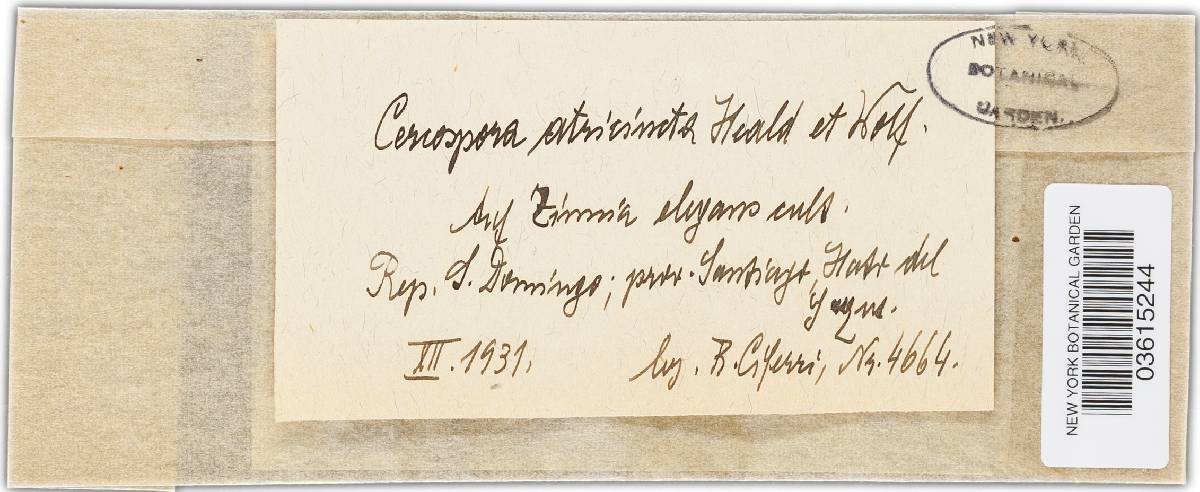 NEW YORK
BOTANICAL
GARDEN.
Cercospora atricincta Heald et Wolf.
Auf Zinnia elegans cult.
Rep. S. Domingo; prov. Santiago, Hato del
Yaque.
XII. 1931. leg. R. Ciferri, Nr. 4664.
NEW YORK BOTANICAL GARDEN
03615244